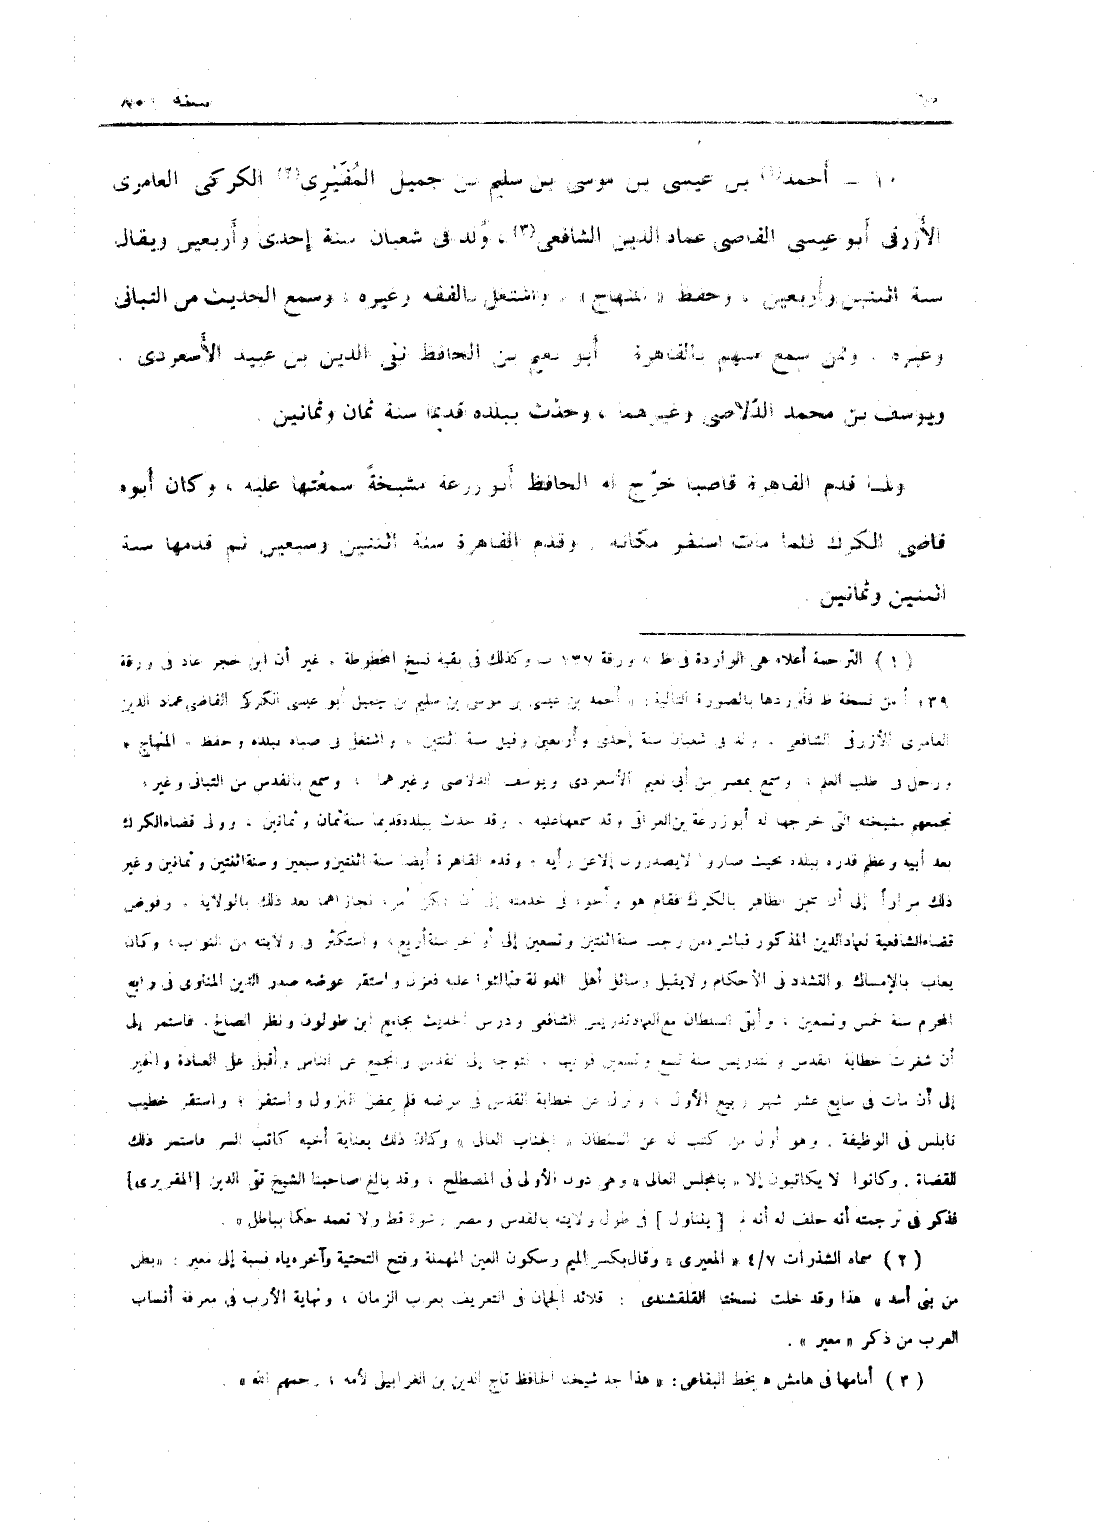 سنة ٨٠١
١٠ ـ أحمد(١) بن عيسى بن موسى بن سليم بن جميل المُقَيْرِى(٢) الكركى العامرى
الأزرقى أبو عيسى القاضى عماد الدين الشافعى(٣) ، وُلد فى شعبان سنة إحدى وأربعين ويقال
سنة اثنتين وأربعين ، وحفظ « المنهاج » ، واشتغل بالفقه وغيره ، وسمع الحديث من التبانى
وغيره ، وممن سمع منهم بالقاهرة أبو نعيم بن الحافظ تقى الدين بن عبيد الأسعردى ،
ويوسف بن محمد الدّلاصى وغيرهما ، وحدّث ببلده قديما سنة ثمان وثمانين .
ولما قدم القاهرة قاضيا خرّج له الحافظ أبو زرعة مشيخةً سمعْتها عليه ، وكان أبوه
قاضى الكرك فلما مات استقر مكانه ، وقدم القاهرة سنة اثنتين وسبعين ثم قدمها سنة
اثنتين وثمانين .
(١) الترجمة أعلاه هى الواردة فى ظ ، ورقة ١٣٧ ب وكذلك فى بقية نسخ المخطوطة ، غير أن ابن حجر عاد فى ورقة
١٣٩ أ من نسخة ظ فأوردها بالصورة التالية : « أحمد بن عيسى بن موسى بن سليم بن جميل أبو عيسى الكركى القاضى عماد الدين
العامرى الأزرقى الشافعى . ولد فى شعبان سنة إحدى وأربعين وقيل سنة اثنتين ، واشتغل فى صباه ببلده وحفظ « المنهاج »
ورحل فى طلب العلم ، وسمع بمصر من أبى نعيم الأسعردى ويوسف الدلاصى وغيرهما ، وسمع بالقدس من التبانى وغيره
تجمعهم مشيخته التى خرجها له أبو زرعة بن العراقى وقد سمعها عليه ، وقد حدث ببلده قديما سنة ثمان وثمانين ، وولى قضاء الكرك
بعد أبيه وعظم قدره ببلده بحيث صاروا لا يصدرون إلا عن رأيه ، وقدم القاهرة أيضا سنة اثنتين وسبعين وسنة اثنتين وثمانين وغير
ذلك مراراً إلى أن سجن الظاهر بالكرك فقام هو وأخوه فى خدمته إلى أن تمكن أمره فجازاهما بعد ذلك بالولاية ، وفوض
قضاء الشافعية لعماد الدين المذكور فباشره من رجب سنة اثنتين وتسعين إلى أواخر سنة أربع ، واستكثر فى ولايته من النواب ، وكان
يعاب بالإمساك والتشدد فى الأحكام ولا يقبل رسائل أهل الدولة فتمالئوا عليه فعزل واستقر عوضه صدر الدين المناوى فى رابع
المحرم سنة خمس وتسعين ، وأبقى السلطان مع العماد تدريس الشافعى ودرس الحديث بجامع ابن طولون ونظر الصالح ، فاستمر إلى
أن شغرت خطابة القدس والتدريس سنة تسع وتسعين ، فتوجه إلى القدس وانجمع عن الناس وأقبل على العبادة والخير
إلى أن مات فى سابع عشر شهر ربيع الأول ، ونزل عن خطابة القدس فى مرضه فلم يمض النزول واستقر ؛ واستقر خطيب
نابلس فى الوظيفة . وهو أول من كتب له عن السلطان « الجناب العالى » وكان ذلك بعناية أخيه كاتب السر فاستمر ذلك
للقضاة ، وكانوا لا يكاتبون إلا « بالمجلس العالى » وهى دون الأولى فى المصطلح ، وقد بالغ صاحبنا الشيخ تقى الدين [المقريزى]
فذكر فى ترجمته أنه حلف له أنه لم [ يتناول ] فى طول ولايته بالقدس ومصر رشوة قط ولا تعمد حكما بباطل » .
(٢) سماه الشذرات ٤/٧ « المعيرى » وقال بكسر الميم وسكون العين المهملة وفتح التحتية وآخره ياء نسبة إلى معير : « بطن
من بنى أسد » هذا وقد خلت نسختا القلقشندى : قلائد الجمان فى التعريف بعرب الزمان ، ونهاية الأرب فى معرفة أنساب
العرب من ذكر « معير » .
(٣) أمامها فى هامش ه بخط البقاعى : « هذا جد شيخنا الحافظ تاج الدين بن الغرابيلى لأمه ، رحمهم الله » .